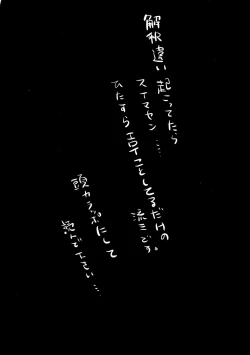 解釈違い
起こってたら
スイマセン……
ひたすらエロイことしてるだけの
流ミです。
頭カラッポにして
読んで下さい…